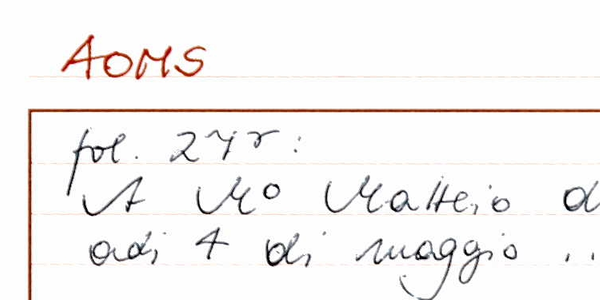 AOMS
fol. 27r:
A Mo Matteio d
adi 4 di maggio ..